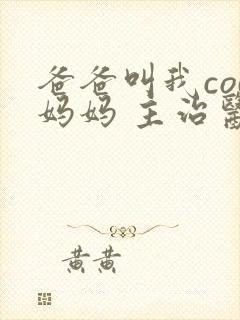 爸爸叫我co
妈妈 主治醫
黄黄